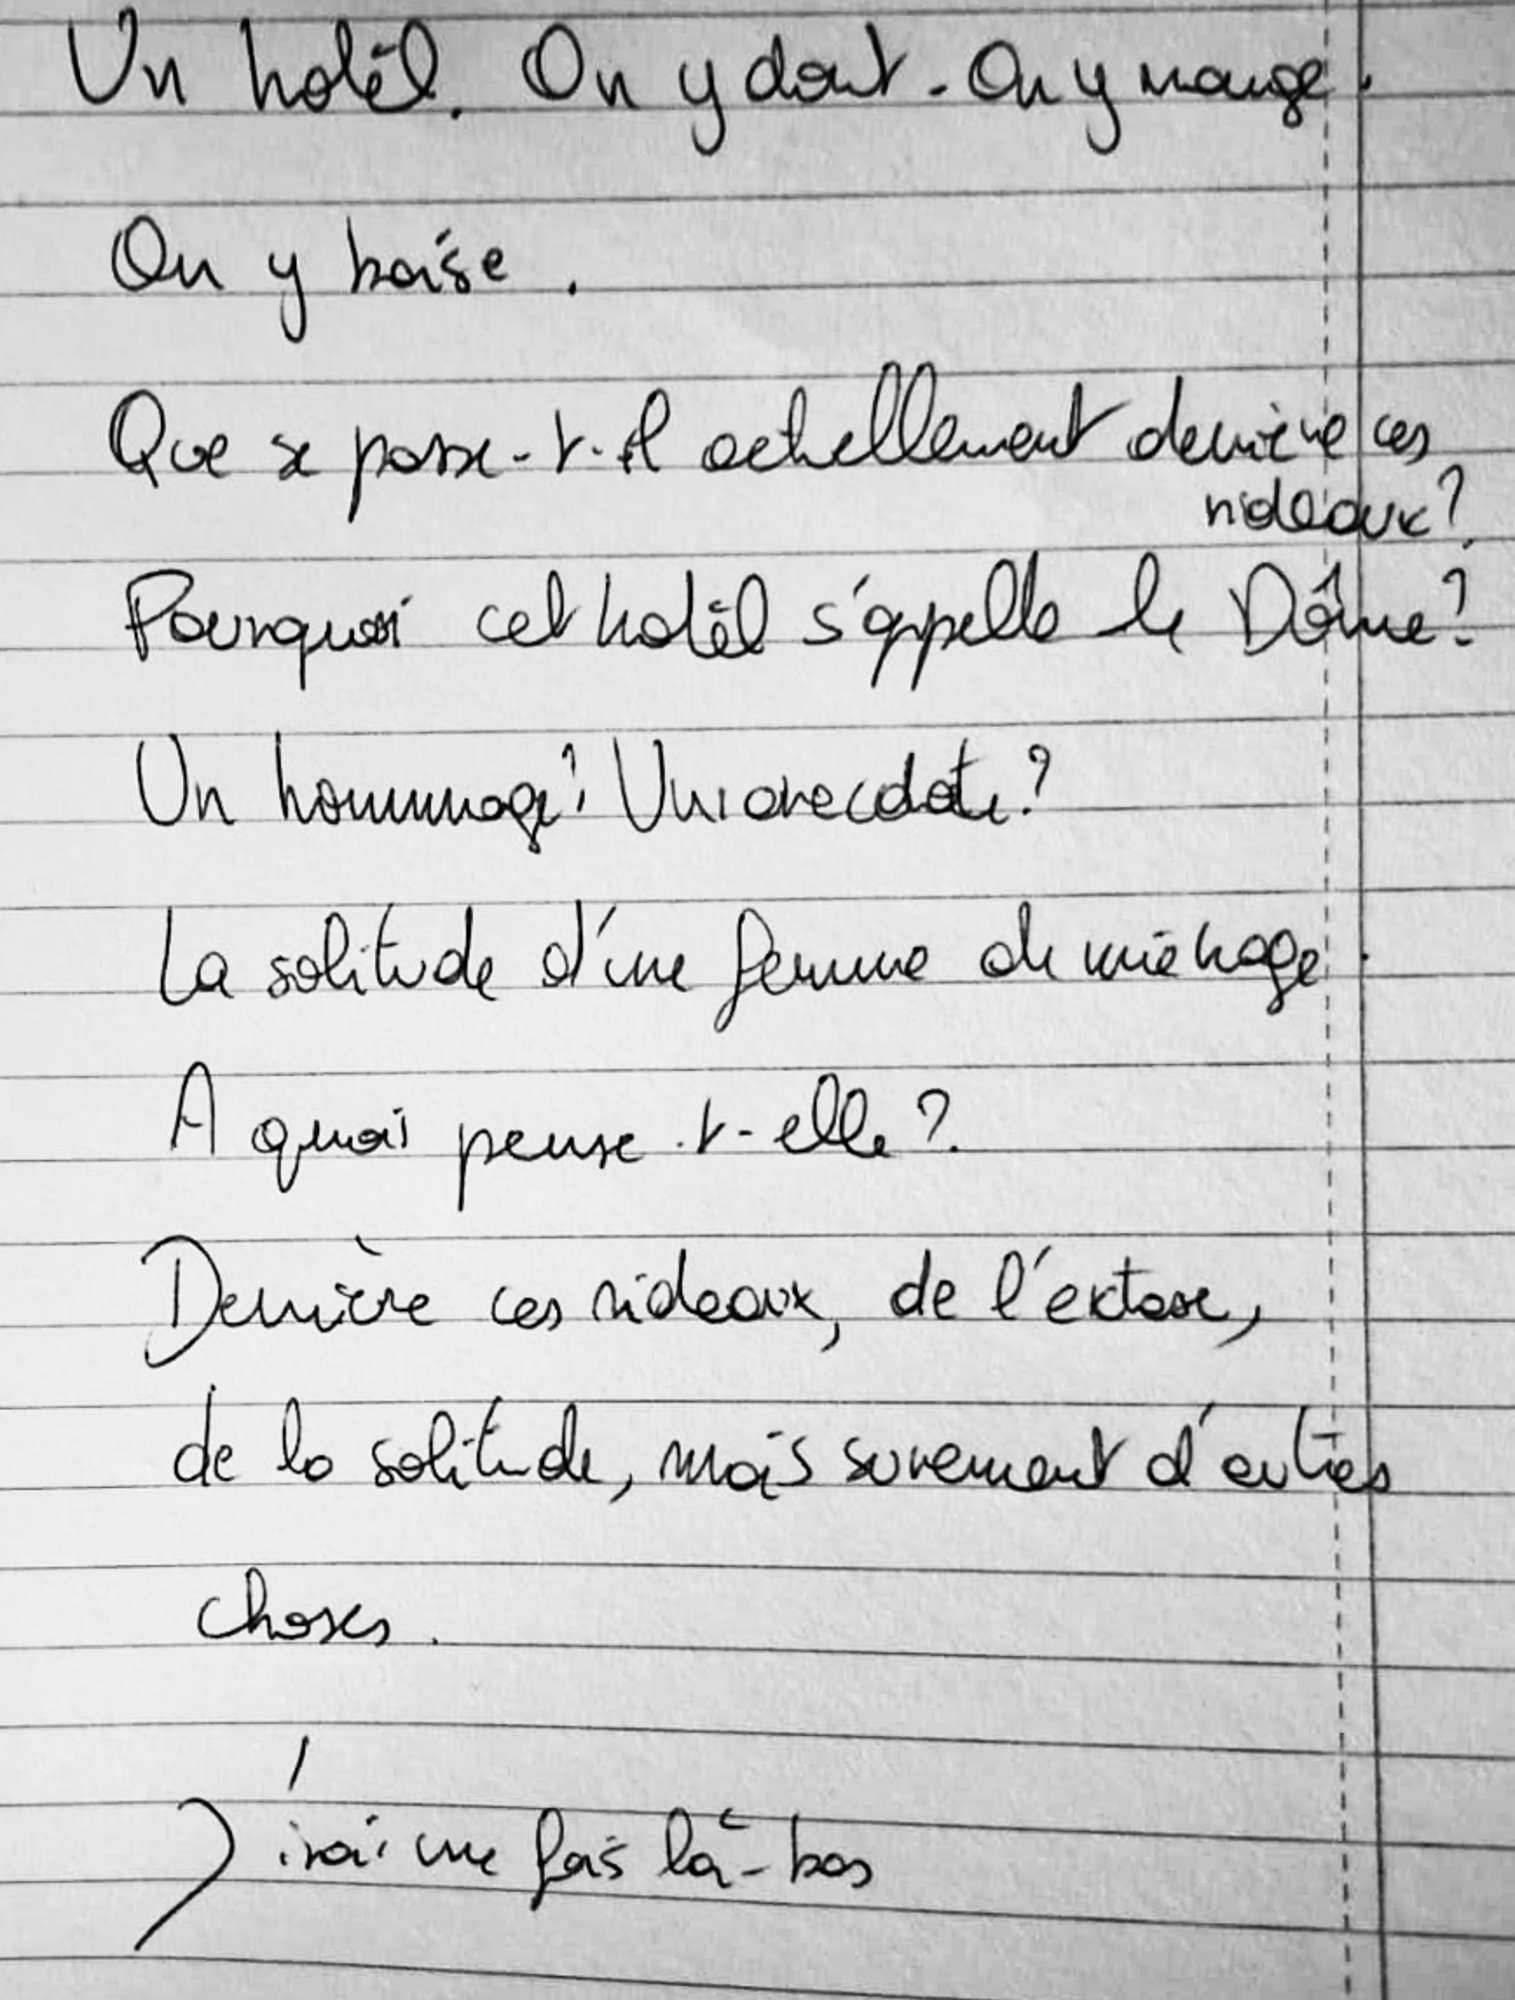 Un hotêl. On y dort. On y mange.
On y baise.
Que se passe-t-il actuellement derrière ces
rideaux?
Pourquoi cet hotêl s'appelle le Dôme?
Un hommage? Une anecdote?
La solitude d'une femme de ménage.
A quoi pense-t-elle?
Derrière ces rideaux, de l'extase,
de la solitude, mais surement d'autres
choses.
J'irai une fois là-bas